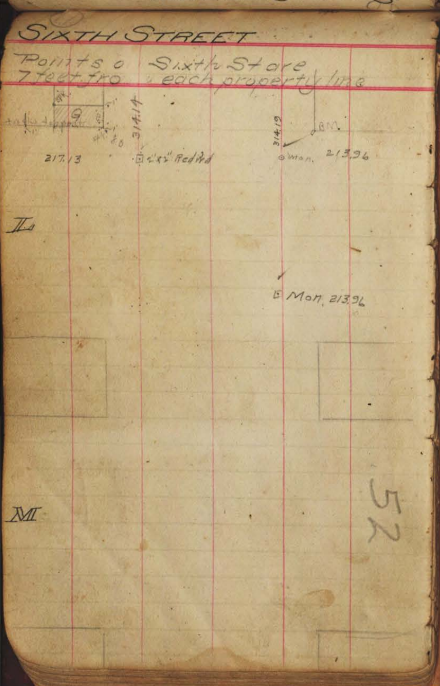 SIXTH STREET
Points o Sixth St are
7 feet fro each property line
314.14
314.19
B.M.
217.13
2"x2" Redwd
Mon. 213.96
L
Mon. 213.96
M
52